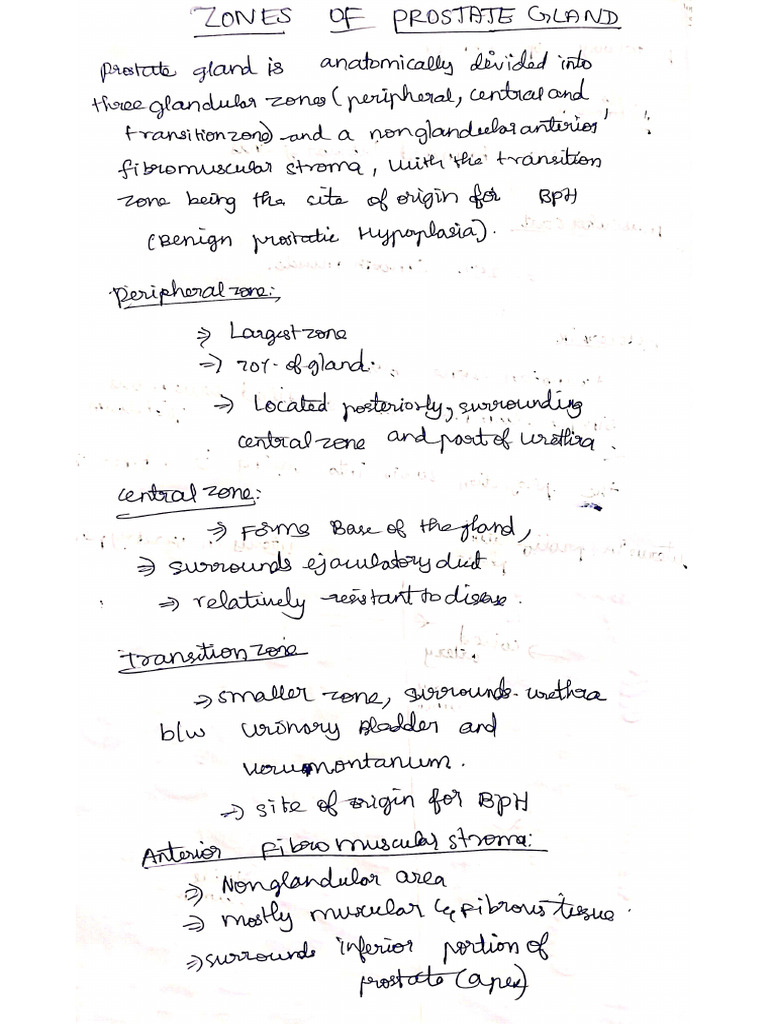 ZONES OF PROSTATE GLAND
prostate gland is anatomically divided into
three glandular zones (peripheral, central and
transition zone) and a nonglandular anterior
fibromuscular stroma, with the transition
zone being the site of origin for BPH
(Benign prostatic Hypoplasia).
peripheral zone:,
⇒ Largest zone
⇒ 70% of gland.
⇒ Located posteriorly, surrounding
central zone and part of urethra.
central zone:
⇒ Forms Base of the gland,
⇒ surrounds ejaculatory duct
⇒ relatively resistant to disease.
Transition zone
⇒ smaller zone, surrounds urethra
b/w urinary Bladder and
verumontanum.
⇒ site of origin for BPH
Anterior fibromuscular stroma:
⇒ Nonglandular area
⇒ mostly muscular & fibrous tissue.
⇒ surrounds inferior portion of
prostate (apex)